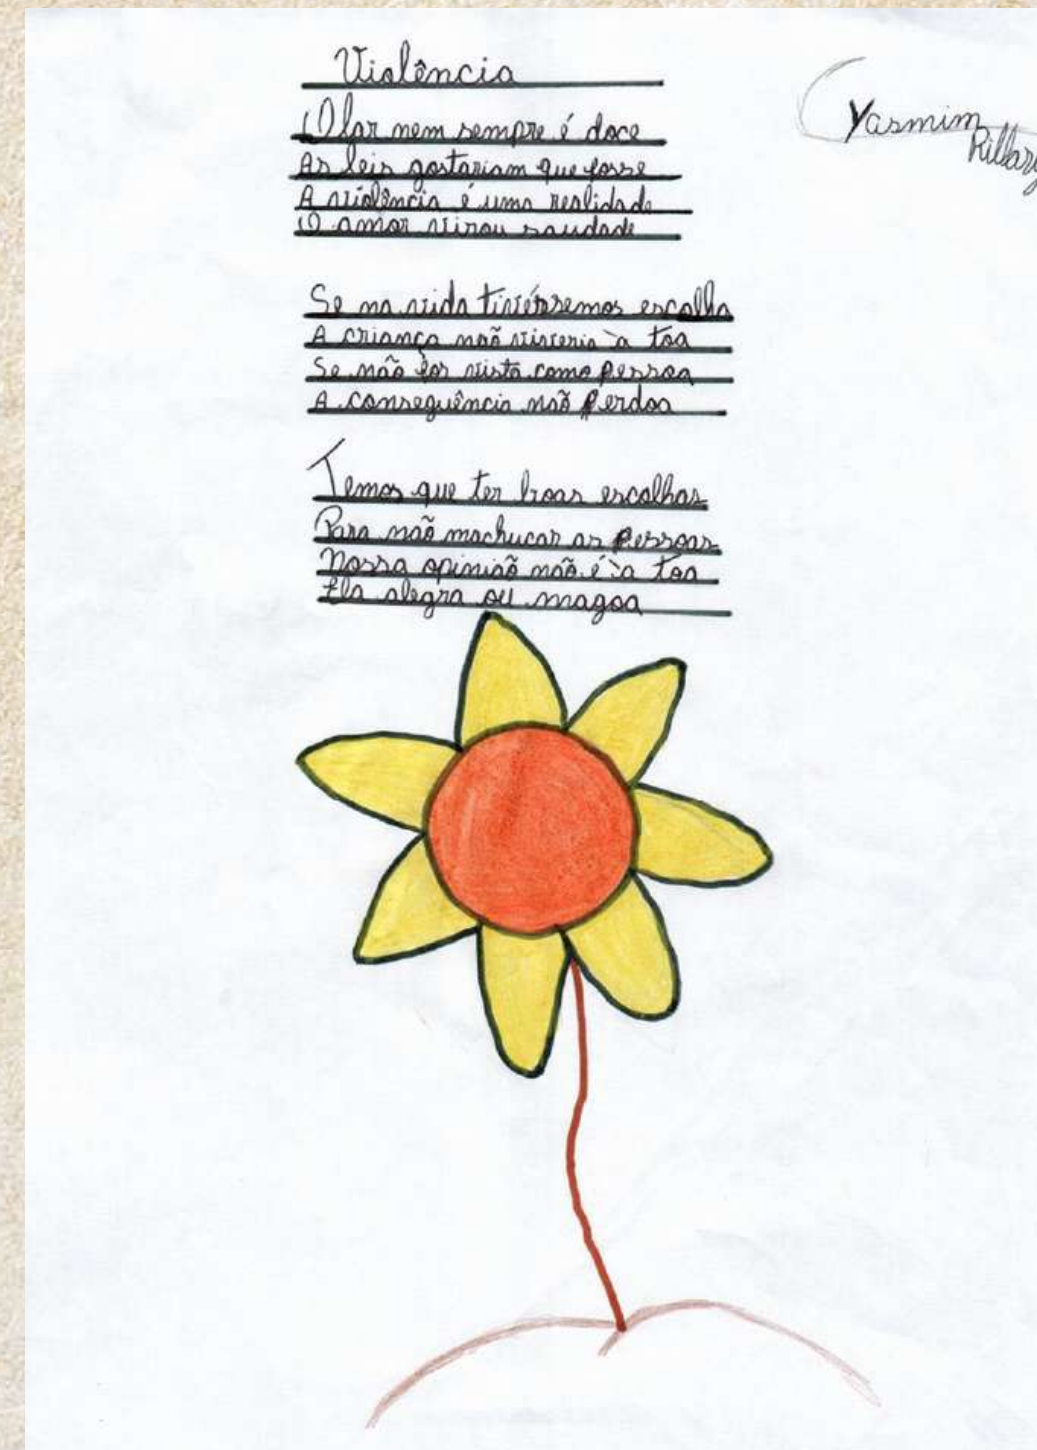 Violência
Yasmim
O lar nem sempre é doce
As leis gostariam que fosse
A violência é uma realidade
O amor virou saudade
Se na vida tivéssemos escolha
A criança não viveria à toa
Se não for vista como pessoa
A consequência não perdoa
Temos que ter boas escolhas
Para não machucar as pessoas
Nossa opinião não é à toa
Ela alegra ou magoa